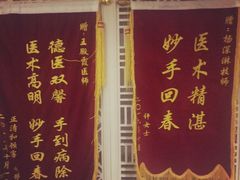 赠：王殿霞医师
德医双馨
医术高明
手到病除
妙手回春
正清和恒寄
赠：杨深淋技师
医术精湛
妙手回春
许女士